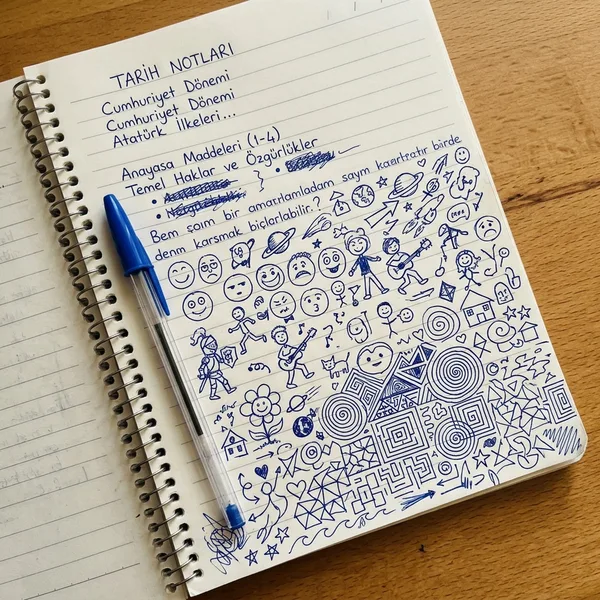 TARİH NOTLARI
Cumhuriyet Dönemi
Cumhuriyet Dönemi
Atatürk İlkeleri...
Anayasa Maddeleri (1-4)
Temel Haklar ve Özgürlükler
Bem şoim bir saym birde
denm karsmak biçlarlabilir.?